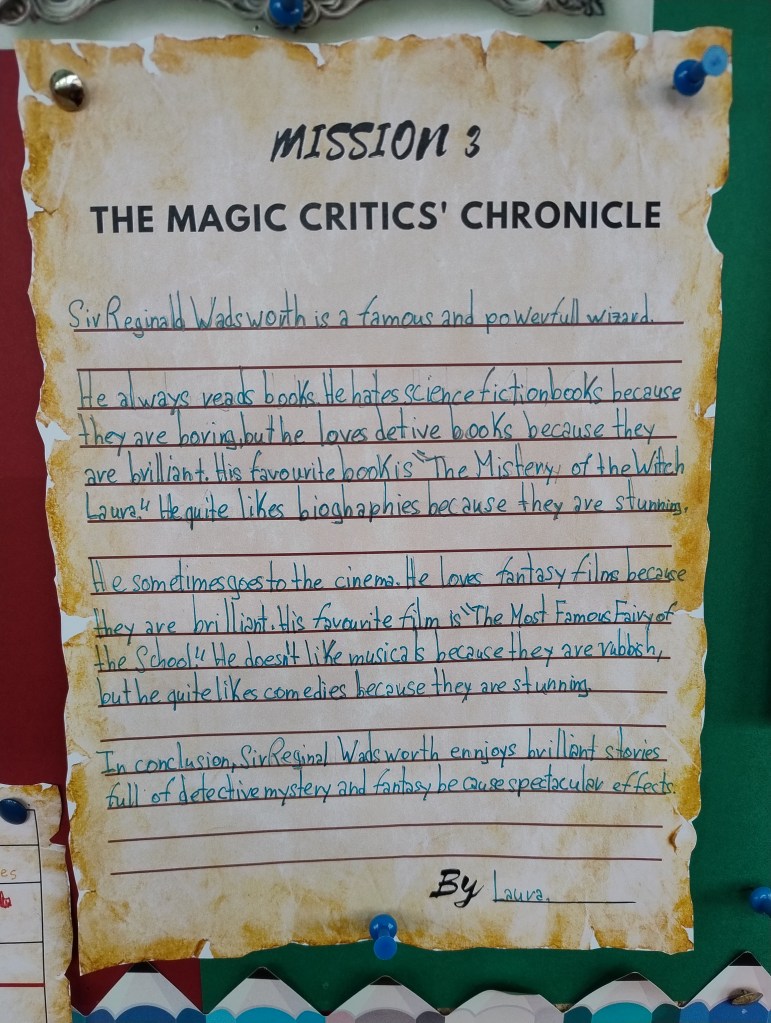 MISSION 3
THE MAGIC CRITICS' CHRONICLE
Sir Reginald Wadsworth is a famous and powerfull wizard.
He always reads books. He hates science fiction books because
they are boring, but he loves detive books because they
are brilliant. His favourite book is "The Mistery of the Witch
Laura." He quite likes bioghaphies because they are stunning.
He sometimes goes to the cinema. He loves fantasy films because
they are brilliant. His favourite film is "The Most Famous Fairy of
the School." He doesn't like musicals because they are rubbish,
but he quite likes comedies because they are stunning.
In conclusion, Sir Reginal Wadsworth ennjoys brilliant stories
full of detective mystery and fantasy because spectacular effects.
By Laura.
es